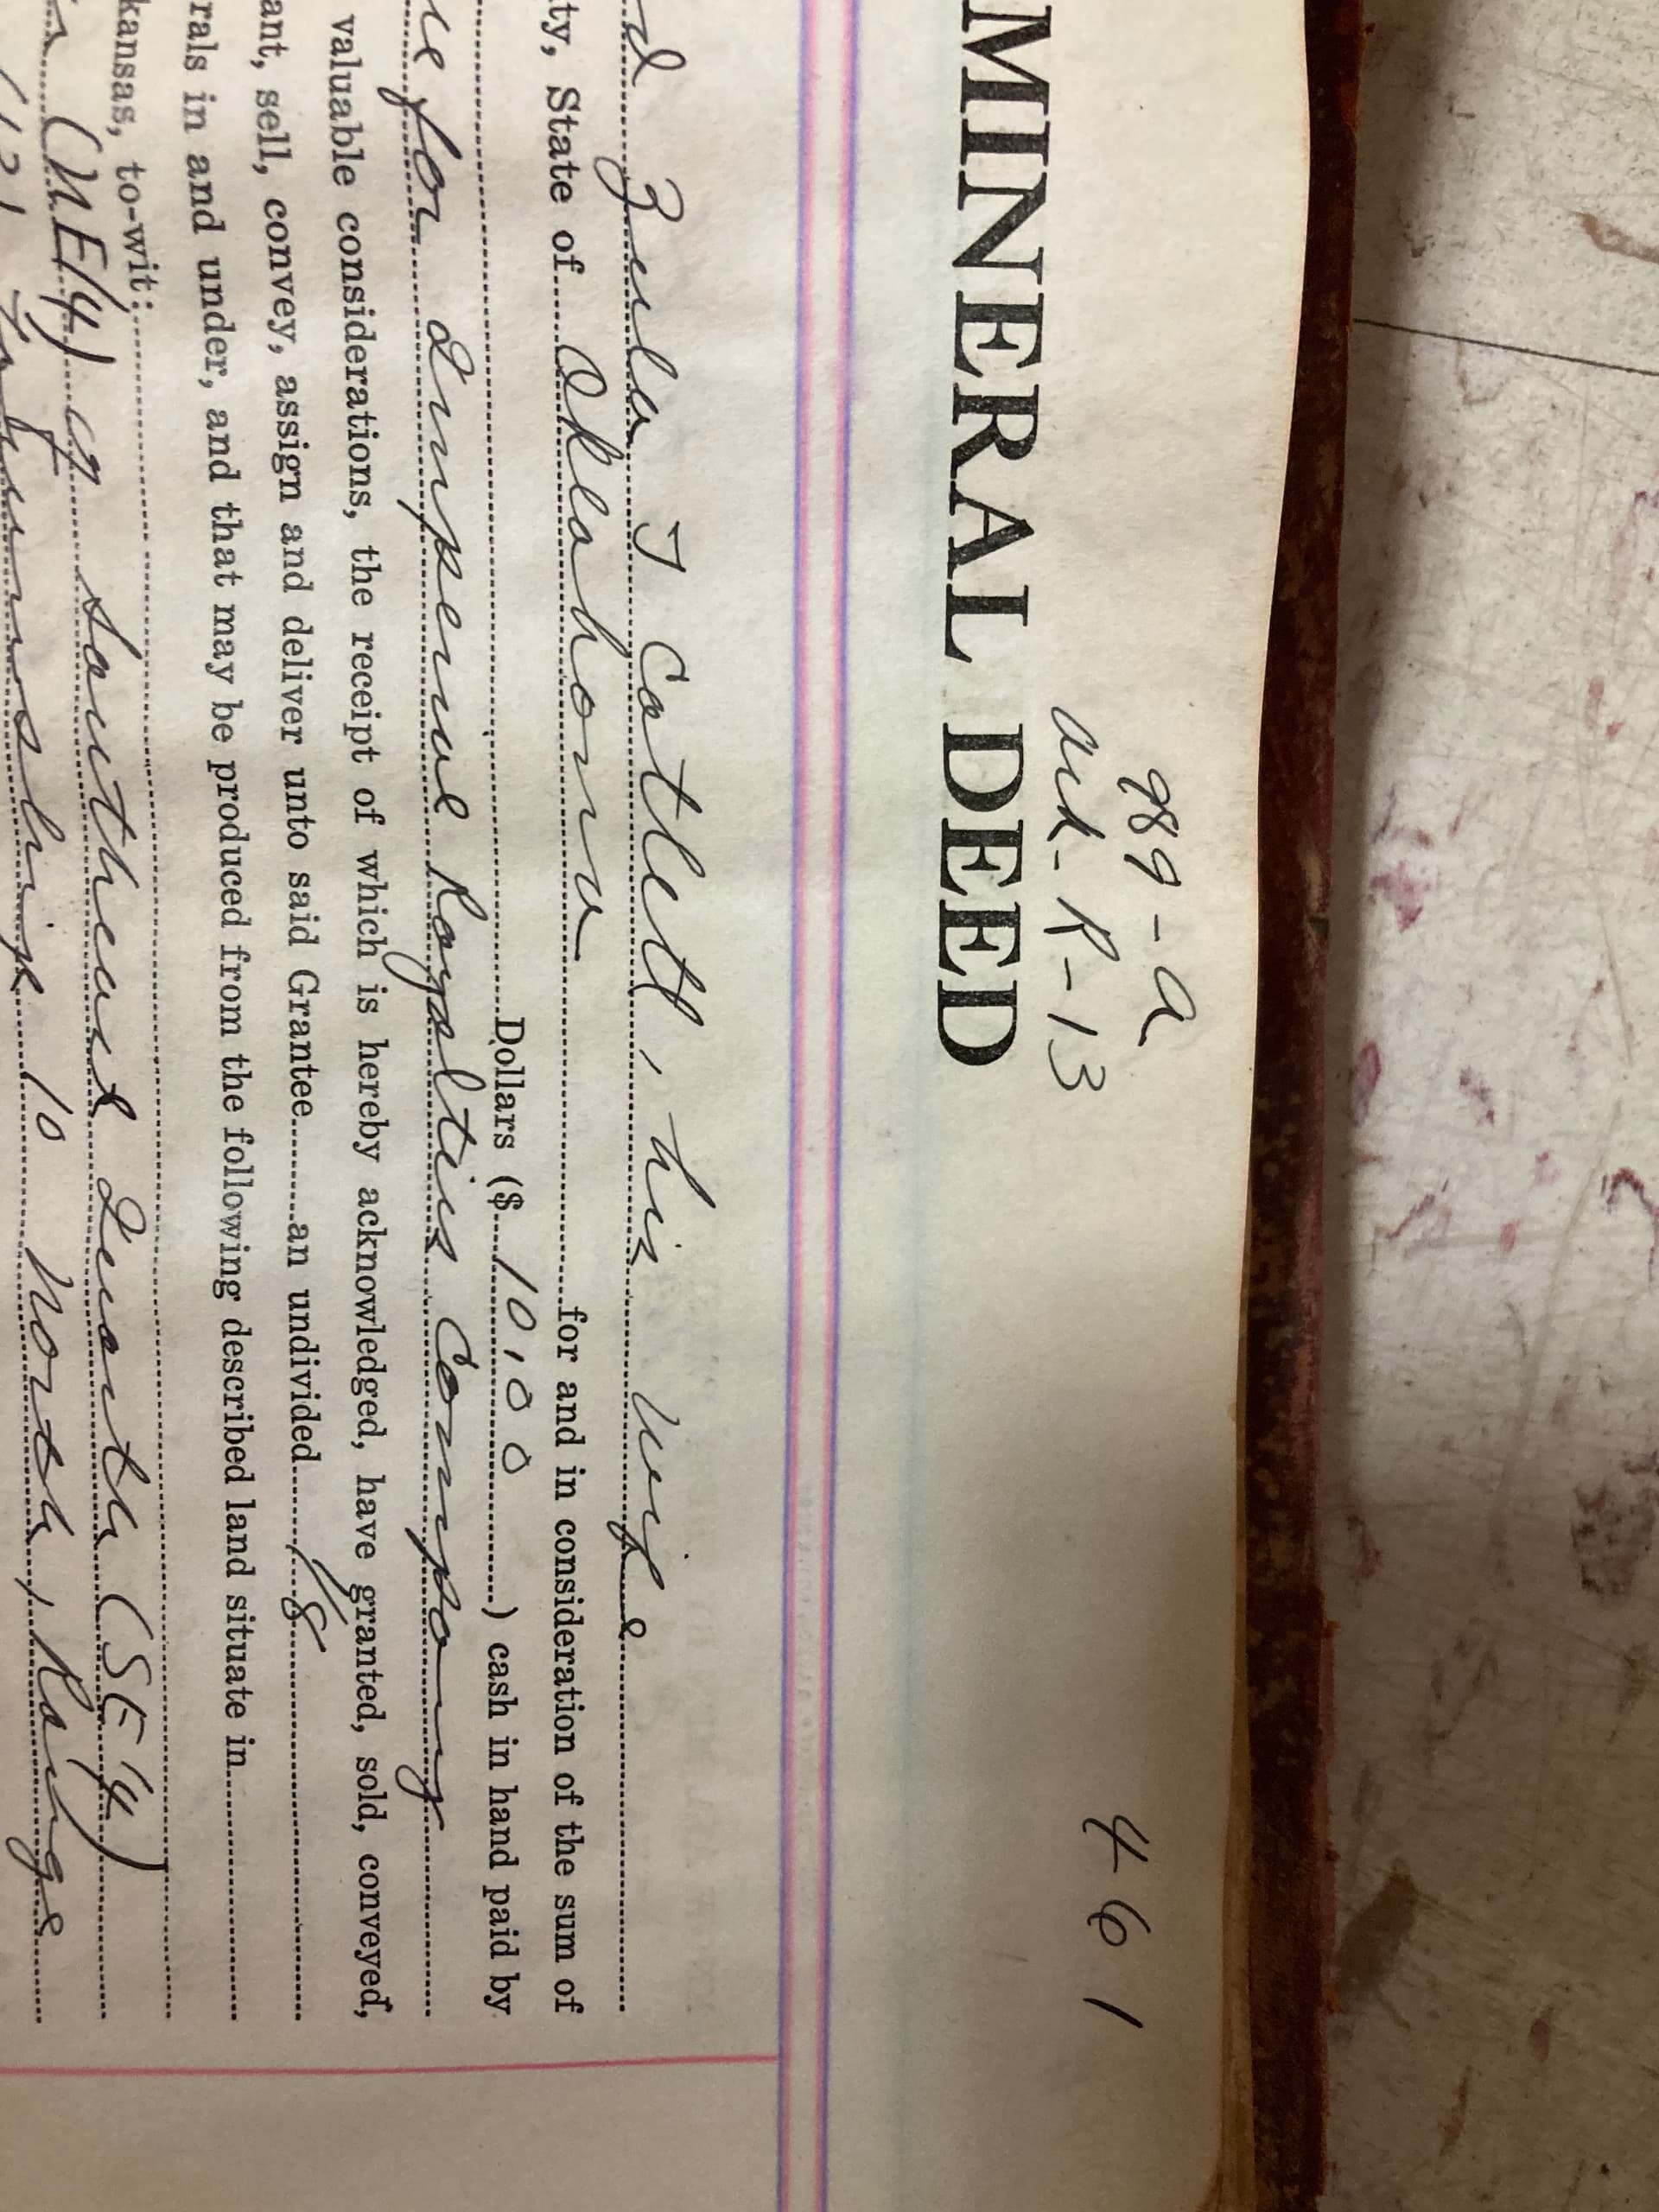 989-A
Ark-R-13
461
MINERAL DEED
Zula T Catlett, his wife
ty, State of Oklahoma for and in consideration of the sum of
Dollars ($ 10.00 ) cash in hand paid by
for Imperial Royalties Company
valuable considerations, the receipt of which is hereby acknowledged, have granted, sold, conveyed,
ant, sell, convey, assign and deliver unto said Grantee an undivided 1/8
rals in and under, and that may be produced from the following described land situate in
kansas, to-wit:
(NE/4) of Southeast Quarter (SE/4)
Township 10 North, Range